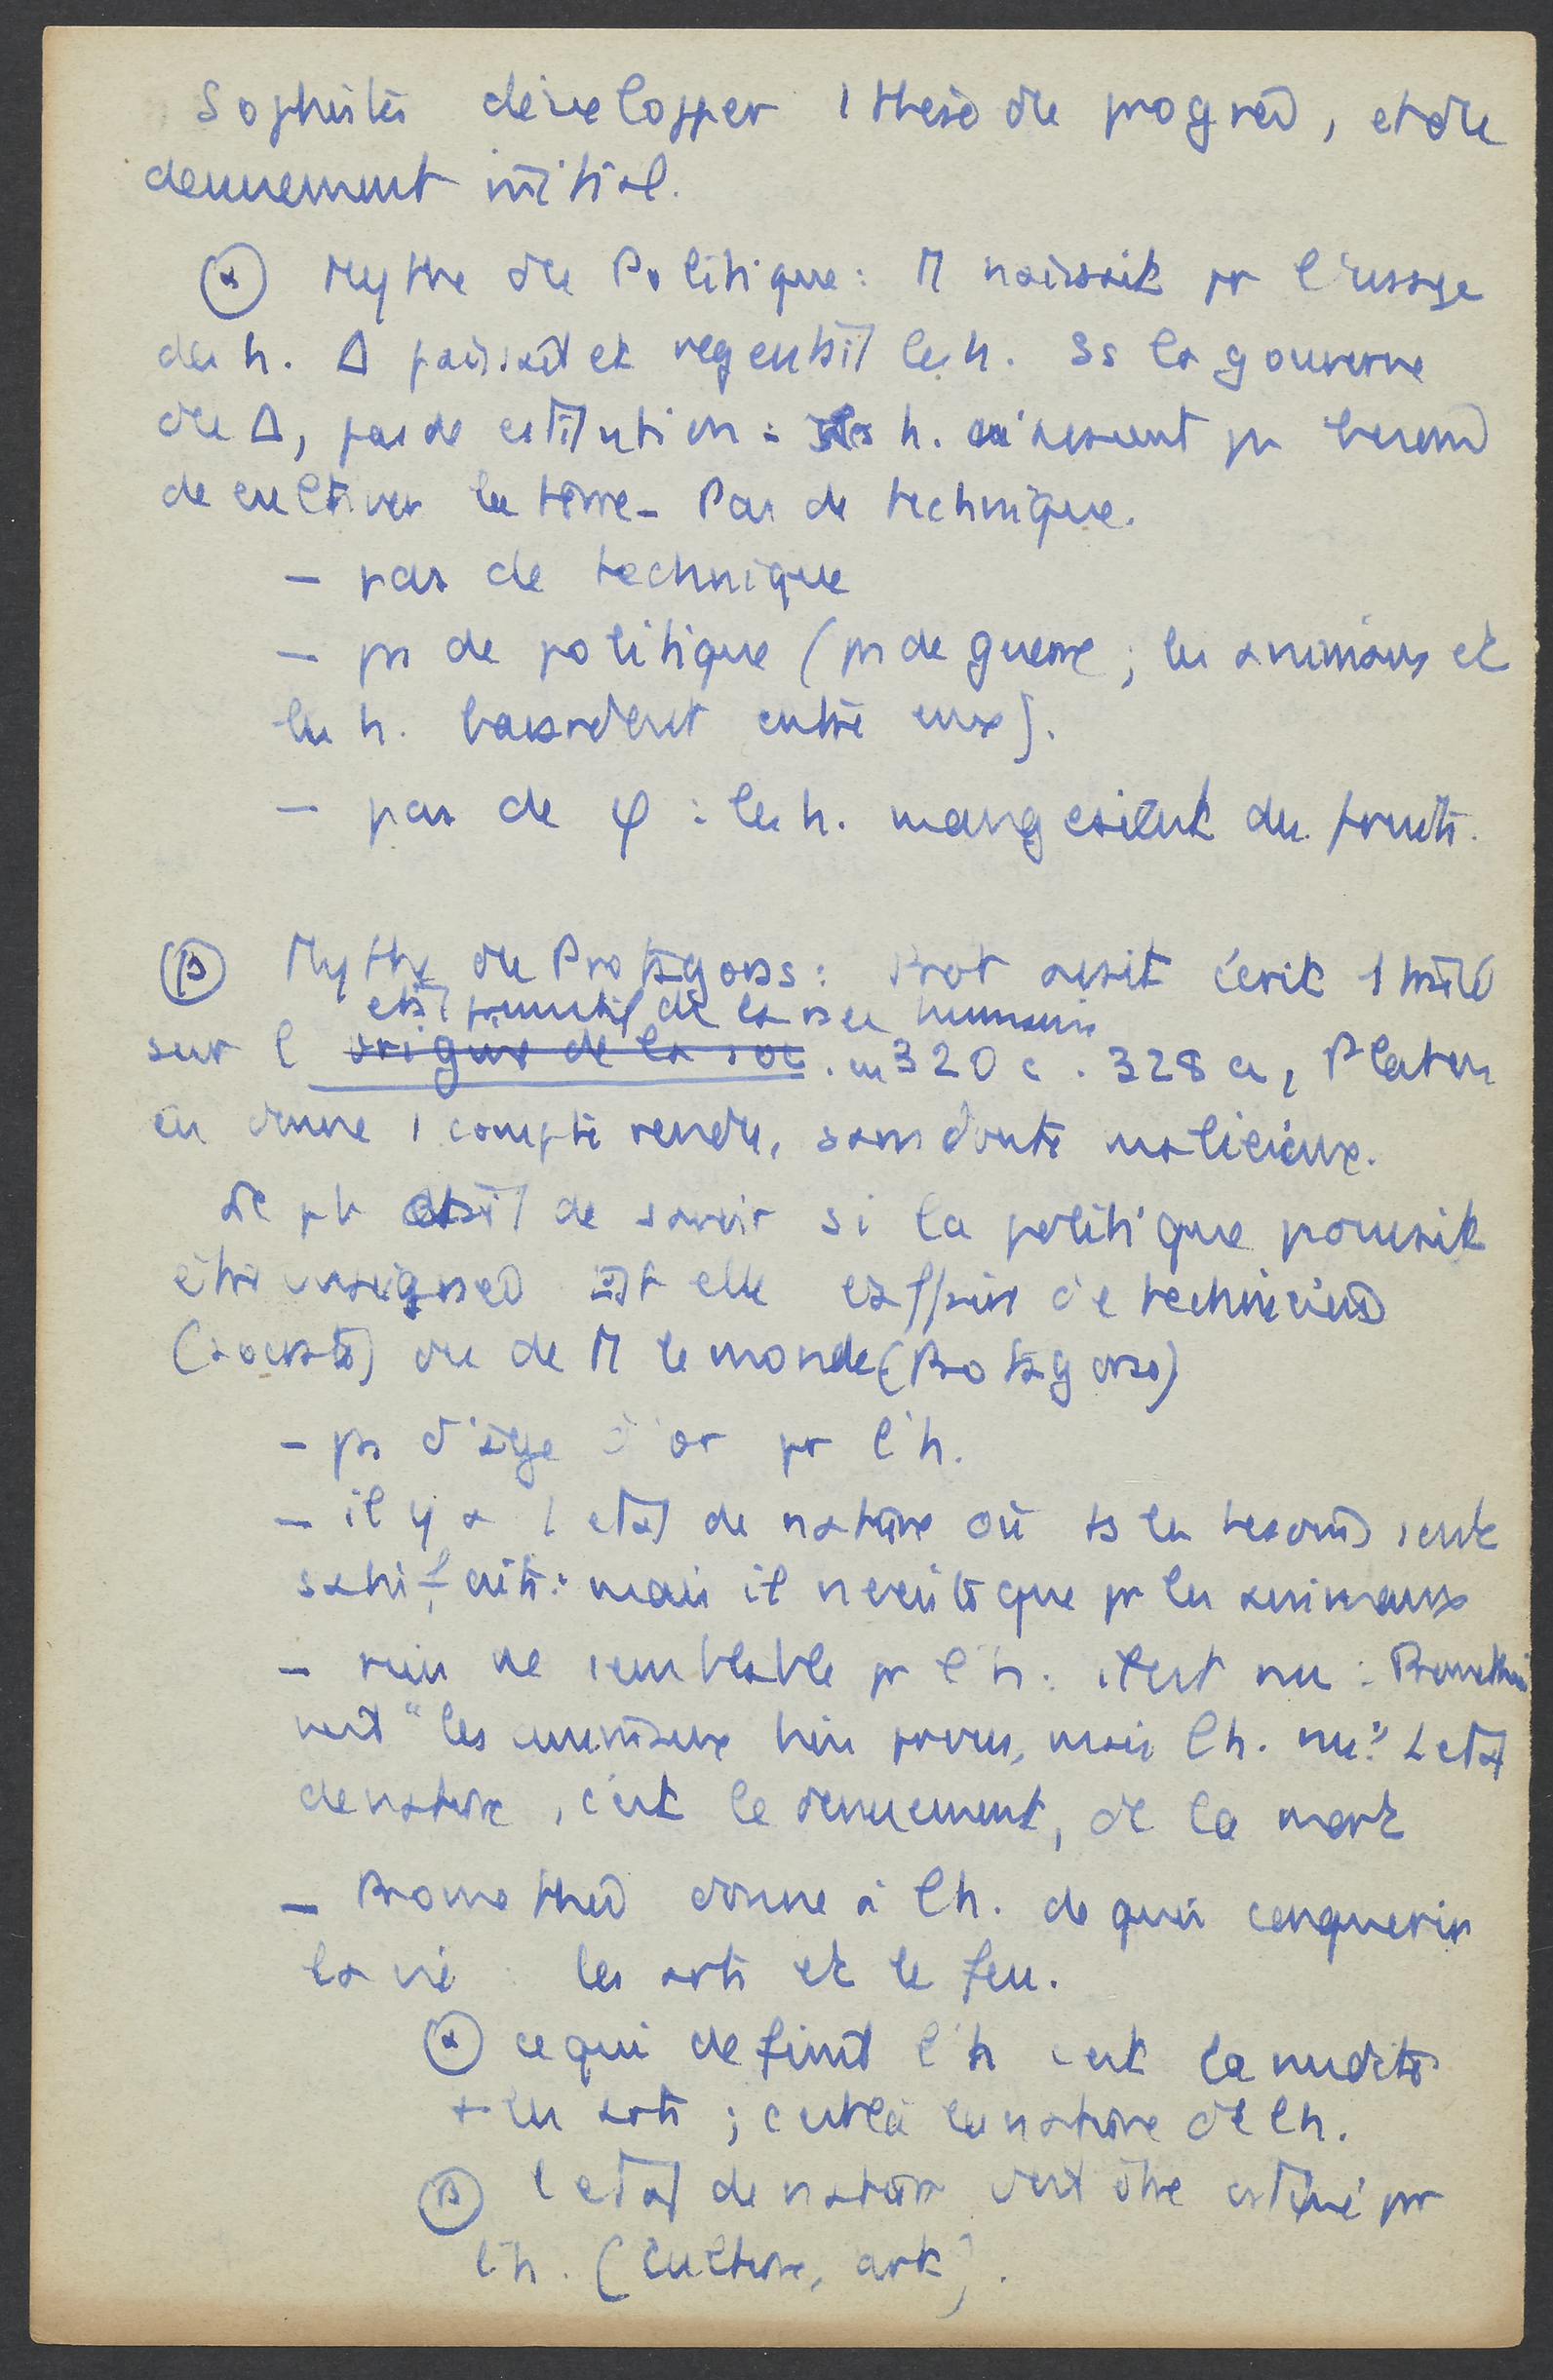 Sophistes développer 1 these du progres, et du
denuement initial.
(α) Mythe du Politique : Π naissait pr l'usage
des h. Δ paissait et regentait les h. ss la gouverne
du Δ, pas de constitution : les h. n'avaient pas besoin
de cultiver la terre - Pas de technique.
– pas de technique
– ps de politique (ps de guerre ; les animaux et
les h. entre eux).
– pas de φ : les h. mangeaient des fruits.
(β) Mythe du Protagoras : Prot avait écrit 1 traité
etat primitif de la humain
sur l' origine de la soc. en 320 c . 328 a, Platon
en donne 1 compte rendu, sans doute malicieux.
de savoir si la politique pouvait
être enseignee est elle l'affaire de techniciens
(socrate) ou de Π le monde (Protagoras)
– ps d'âge d'or pr l'h.
– il y a 1 etat de nature où ts les besoins sont
satisfaits : mais il n'existe que pr les animaux
– rien de semblable pr l'h : il est nu : Promethee
voit "les animaux bien pourvus, mais l'h. nu". L'etat
de nature, c'est le denuement, de la mort
– Promethee donne à l'h. de quoi conquerir
la vie : les arts et le feu.
(α) ce qui definit l'h c'est la nudite
+ les arts ; c'est là la nature de l'h.
(β) l'etat de nature doit être pr
l'h. (culture, art).